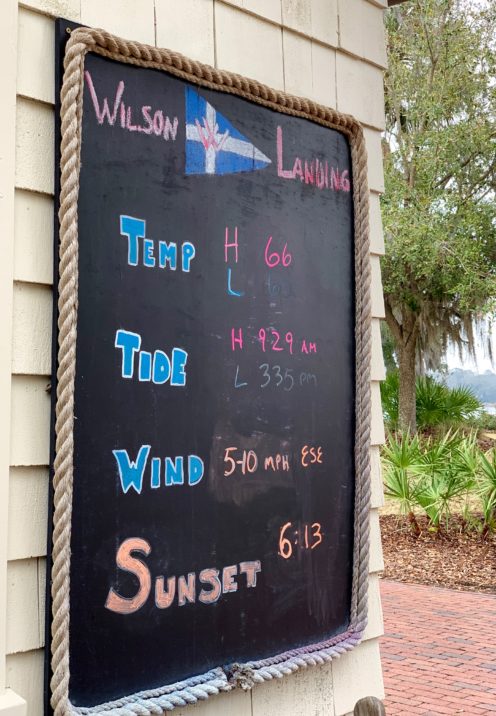 Wilson W Landing
Temp H 66
L
Tide H 929 AM
L 335 pm
Wind 5-10 MPH ESE
Sunset 6:13